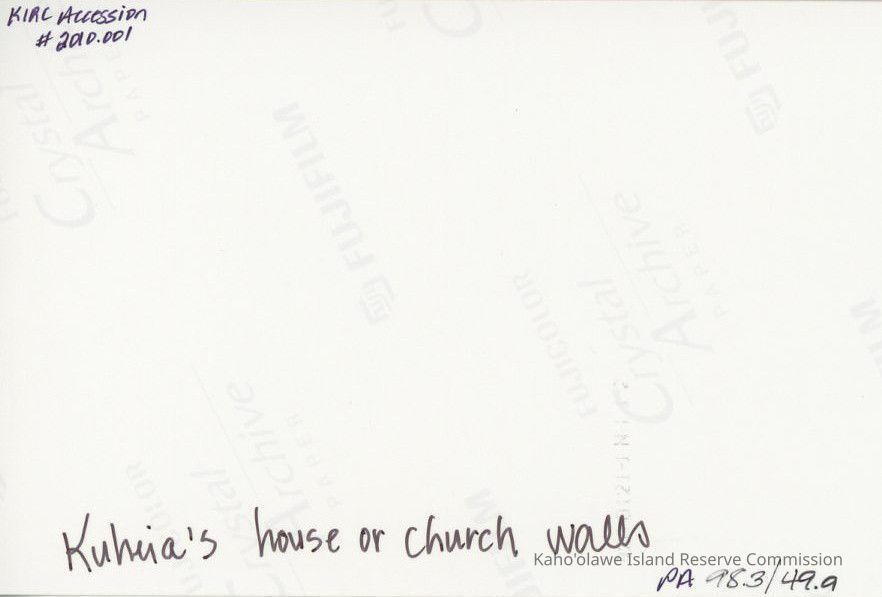 KIRC Accession
# 2010.001
FUJIFILM
FUJIFILM
Crystal
Archive
PAPER
FUJICOLOR
Crystal
Archive
PAPER
FUJICOLOR
Crystal
Archive
PAPER
Kuheia's house or church walls
Kaho'olawe Island Reserve Commission
PA 98.3/49.a